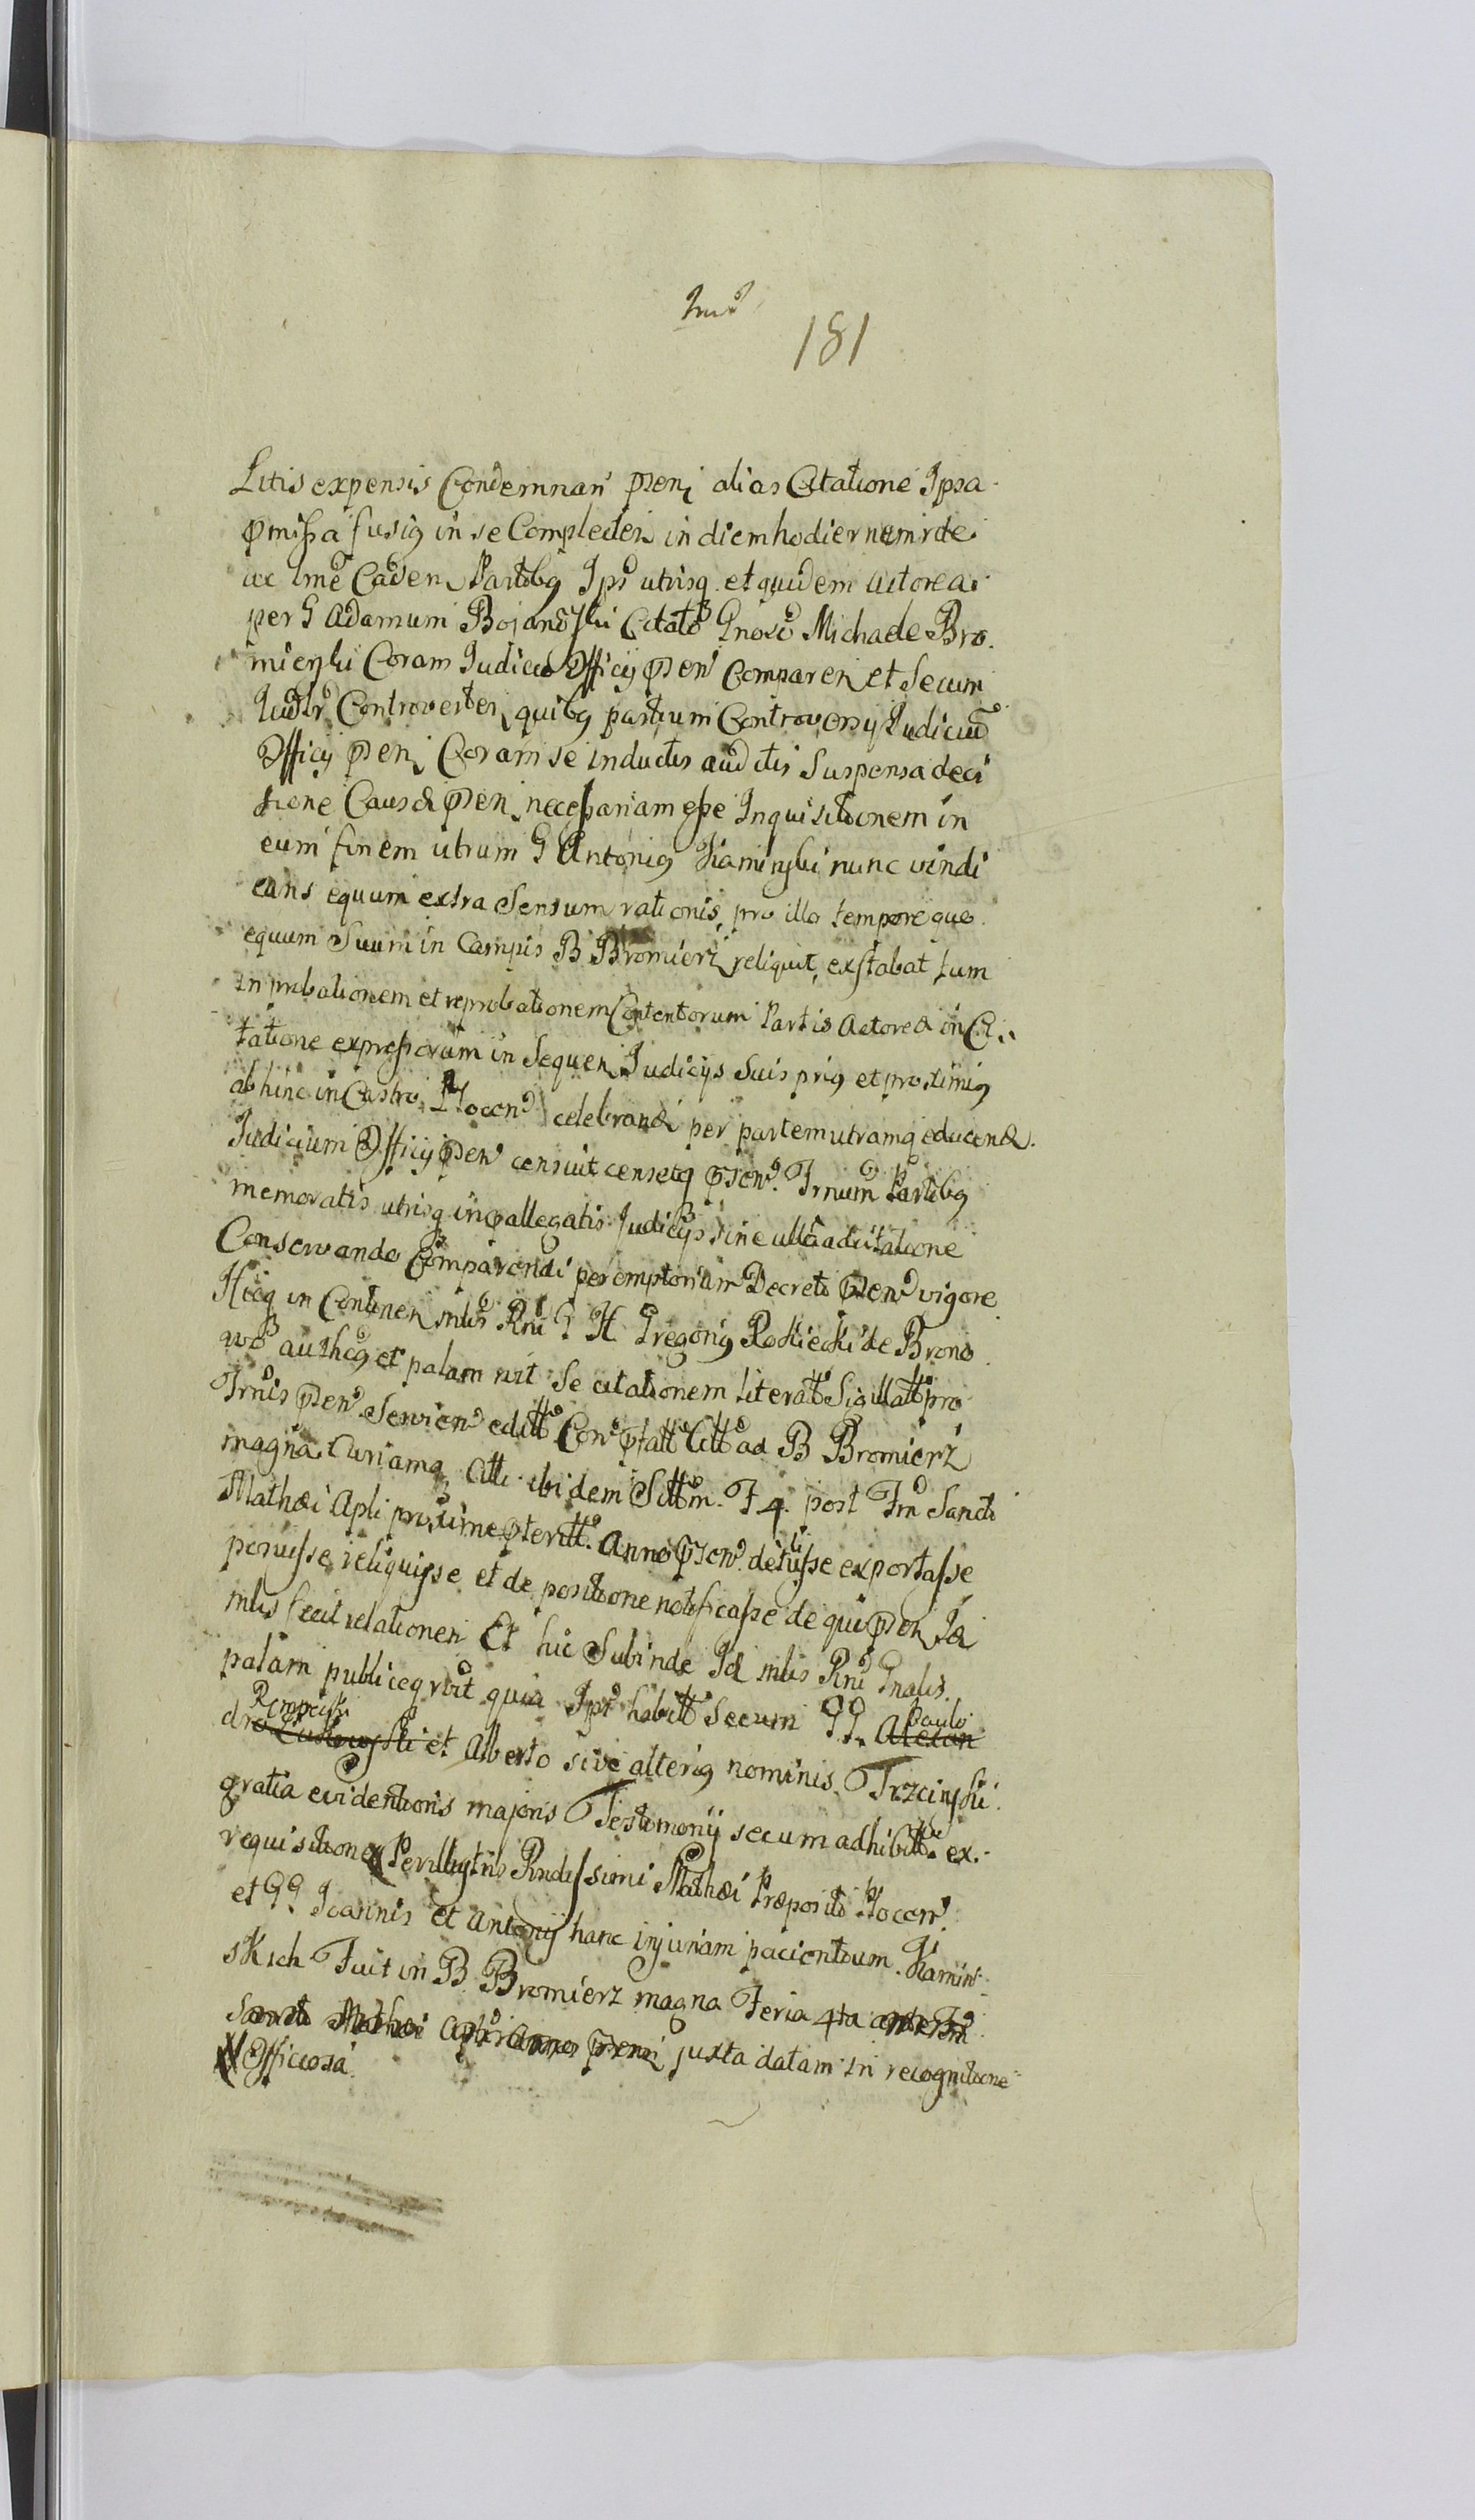 181
Litis expensis Condemnari pseni alias Citatione Ipsa
pmissa fusiq in se Complecten in diem hodiernem rite
ac lme Caden Partibq Ips utrisq et quidem Actorea
per G Adamum Bojanowski Citato Gnoso Michaele Bro
mierski Coram Judicio Officij psen Comparen et Secum
Judlr Controverten quibq partium Controversij Judiciu
Officij psen Coram se inductis auditis Suspensa deci
sione Causæ psen necessariam esse Inquisitionem in
eum finem utrum G Antoniq Kaminski nunc vindi
cans equum extra Sensum rationis pro illo tempore quo
equum Suum in Campis B. Bromierz reliquit, exstabat tum
in probationem et reprobationem Contentorum Partis Actoreæ in Ci
tatione expressorum in Sequen Judicijs Suis priq et proximiq
abhinc in Castro Plocen celebrandi per partem utramq educend.
Judicium Officij psen censuit censetq psen. Trnum Partibq
memoratis utrisq in pallegatis Judicijs sine ulla adcitatione
Conservando Comparendi peremptorium Decreto psen vigore
Hicq in Continen mlis Rni G H Gregoriq Rokicki de Brono
wo authcq et palam rvit Se citationem literatt Sigillatt pro
Trnis psen Servien editt Con ptatt Citt ad B Bromierz
magna Curiamq Citti ibidem Sittm. F 4. post Fm Sancti
Mathæi Apli proxime pteritt. Anno psen. detulisse exportasse
posuisse, reliquisse et de positione notificasse de qui psen Id
mlis fecit relationen Et hic Subinde Id mlis Rni Gnalis.
palam publiceq rvit quia Ips habitt Secum GG. Alexan
Paulo
Rempiski
dro et Alberto sive alteriq nominis Trzcinski
gratia evidentioris majoris Testimonij secum adhibitt ex
requisitione Perillustris Rndissimi Mathæi Præpositi Plocen
et GG. Joannis et Antonij hanc injuriam pacientium Kamin
skich Fuit in B Bromierz magna Feria 4ta ante Fm
Sancti Mathæi Apli Anno pseni juxta datam in recognitione
Officiosa